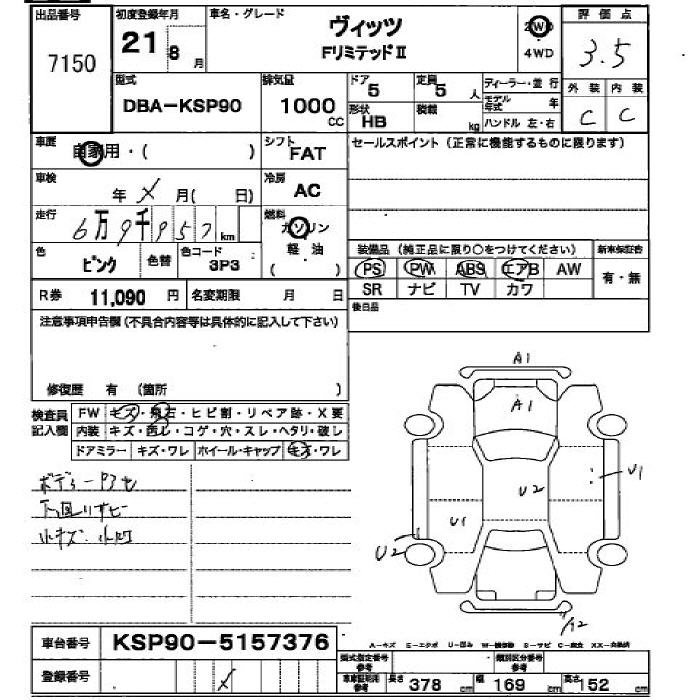 出品番号 初度登録年月 車名・グレード ヴィッツ 2WD 評価点
7150 21 8月 FリミテッドⅡ 4WD 3.5
型式 排気量 ドア 5 定員 5人 ディーラー・並行 外装 内装
DBA-KSP90 1000cc 形状 HB 積載 kg モデル年式 年 C C
ハンドル 左・右
車歴 自家用・( ) シフト FAT セールスポイント(正常に機能するものに限ります)
車検 年 月( 日) 冷房 AC
走行 6万9千957km 燃料 ガソリン
軽油
( )
色 ピンク 色替 色コード 3P3 装備品(純正品に限り○をつけてください) 新車保証書
PS PW ABS エアB AW 有・無
R券 11,090円 名変期限 月 日 SR ナビ TV カワ
注意事項申告欄(不具合内容等は具体的に記入して下さい) 後日品
修復歴 有 (箇所 )
検査員 FW キズ・飛石・ヒビ割・リペア跡・X要
記入欄 内装 キズ・西し・コゲ・穴・スレ・ヘタリ・破し
ドアミラー キズ・ワレ ホイール・キャップ キズ・ワレ
A1
A1
U1
U2
U1
U2
下回りサビ
小キズ 小凹
車台番号 KSP90-5157376
登録番号
型式指定番号 参考 類別区分番号 参考
車庫証明用 参考 長さ 378cm 幅 169cm 高さ 152cm